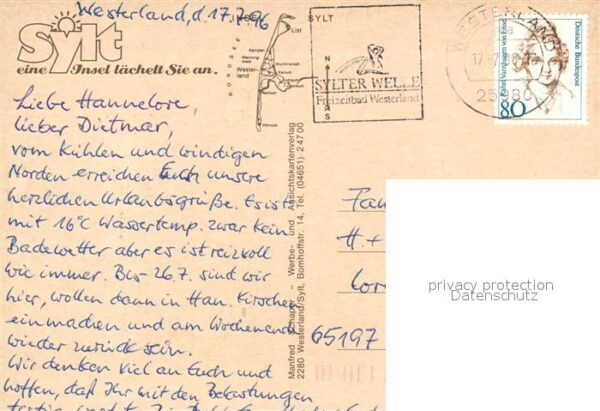 Westerland, d. 17.7.96
Sylt
eine Insel lächelt Sie an.
INSEL SYLT
NORDSEE
List
Kampen
Wester-
land
SYLTER WELLE
Freizeitbad Westerland
WESTERLAND
25980
Deutsche Bundespost
80
Liebe Hannelore,
lieber Dietmar,
vom kühlen und windigen
Norden erreichen Euch unsere
herzlichen Urlaubsgrüße. Es ist
mit 16°C Wassertemp. zwar kein
Badewetter aber es ist reizvoll
wie immer. Bis 26.7. sind wir
hier, wollen dann in Han. Kirschen
einmachen und am Wochenend
wieder zurück sein.
Wir denken viel an Euch und
hoffen, daß Ihr mit den Belastungen
Manfred Schaper - Werbe- und Ansichtskartenverlag
2280 Westerland/Sylt, Bomhoffstr. 14, Tel. (04651) 24700
Fam
H +
65197
privacy protection
Datenschutz